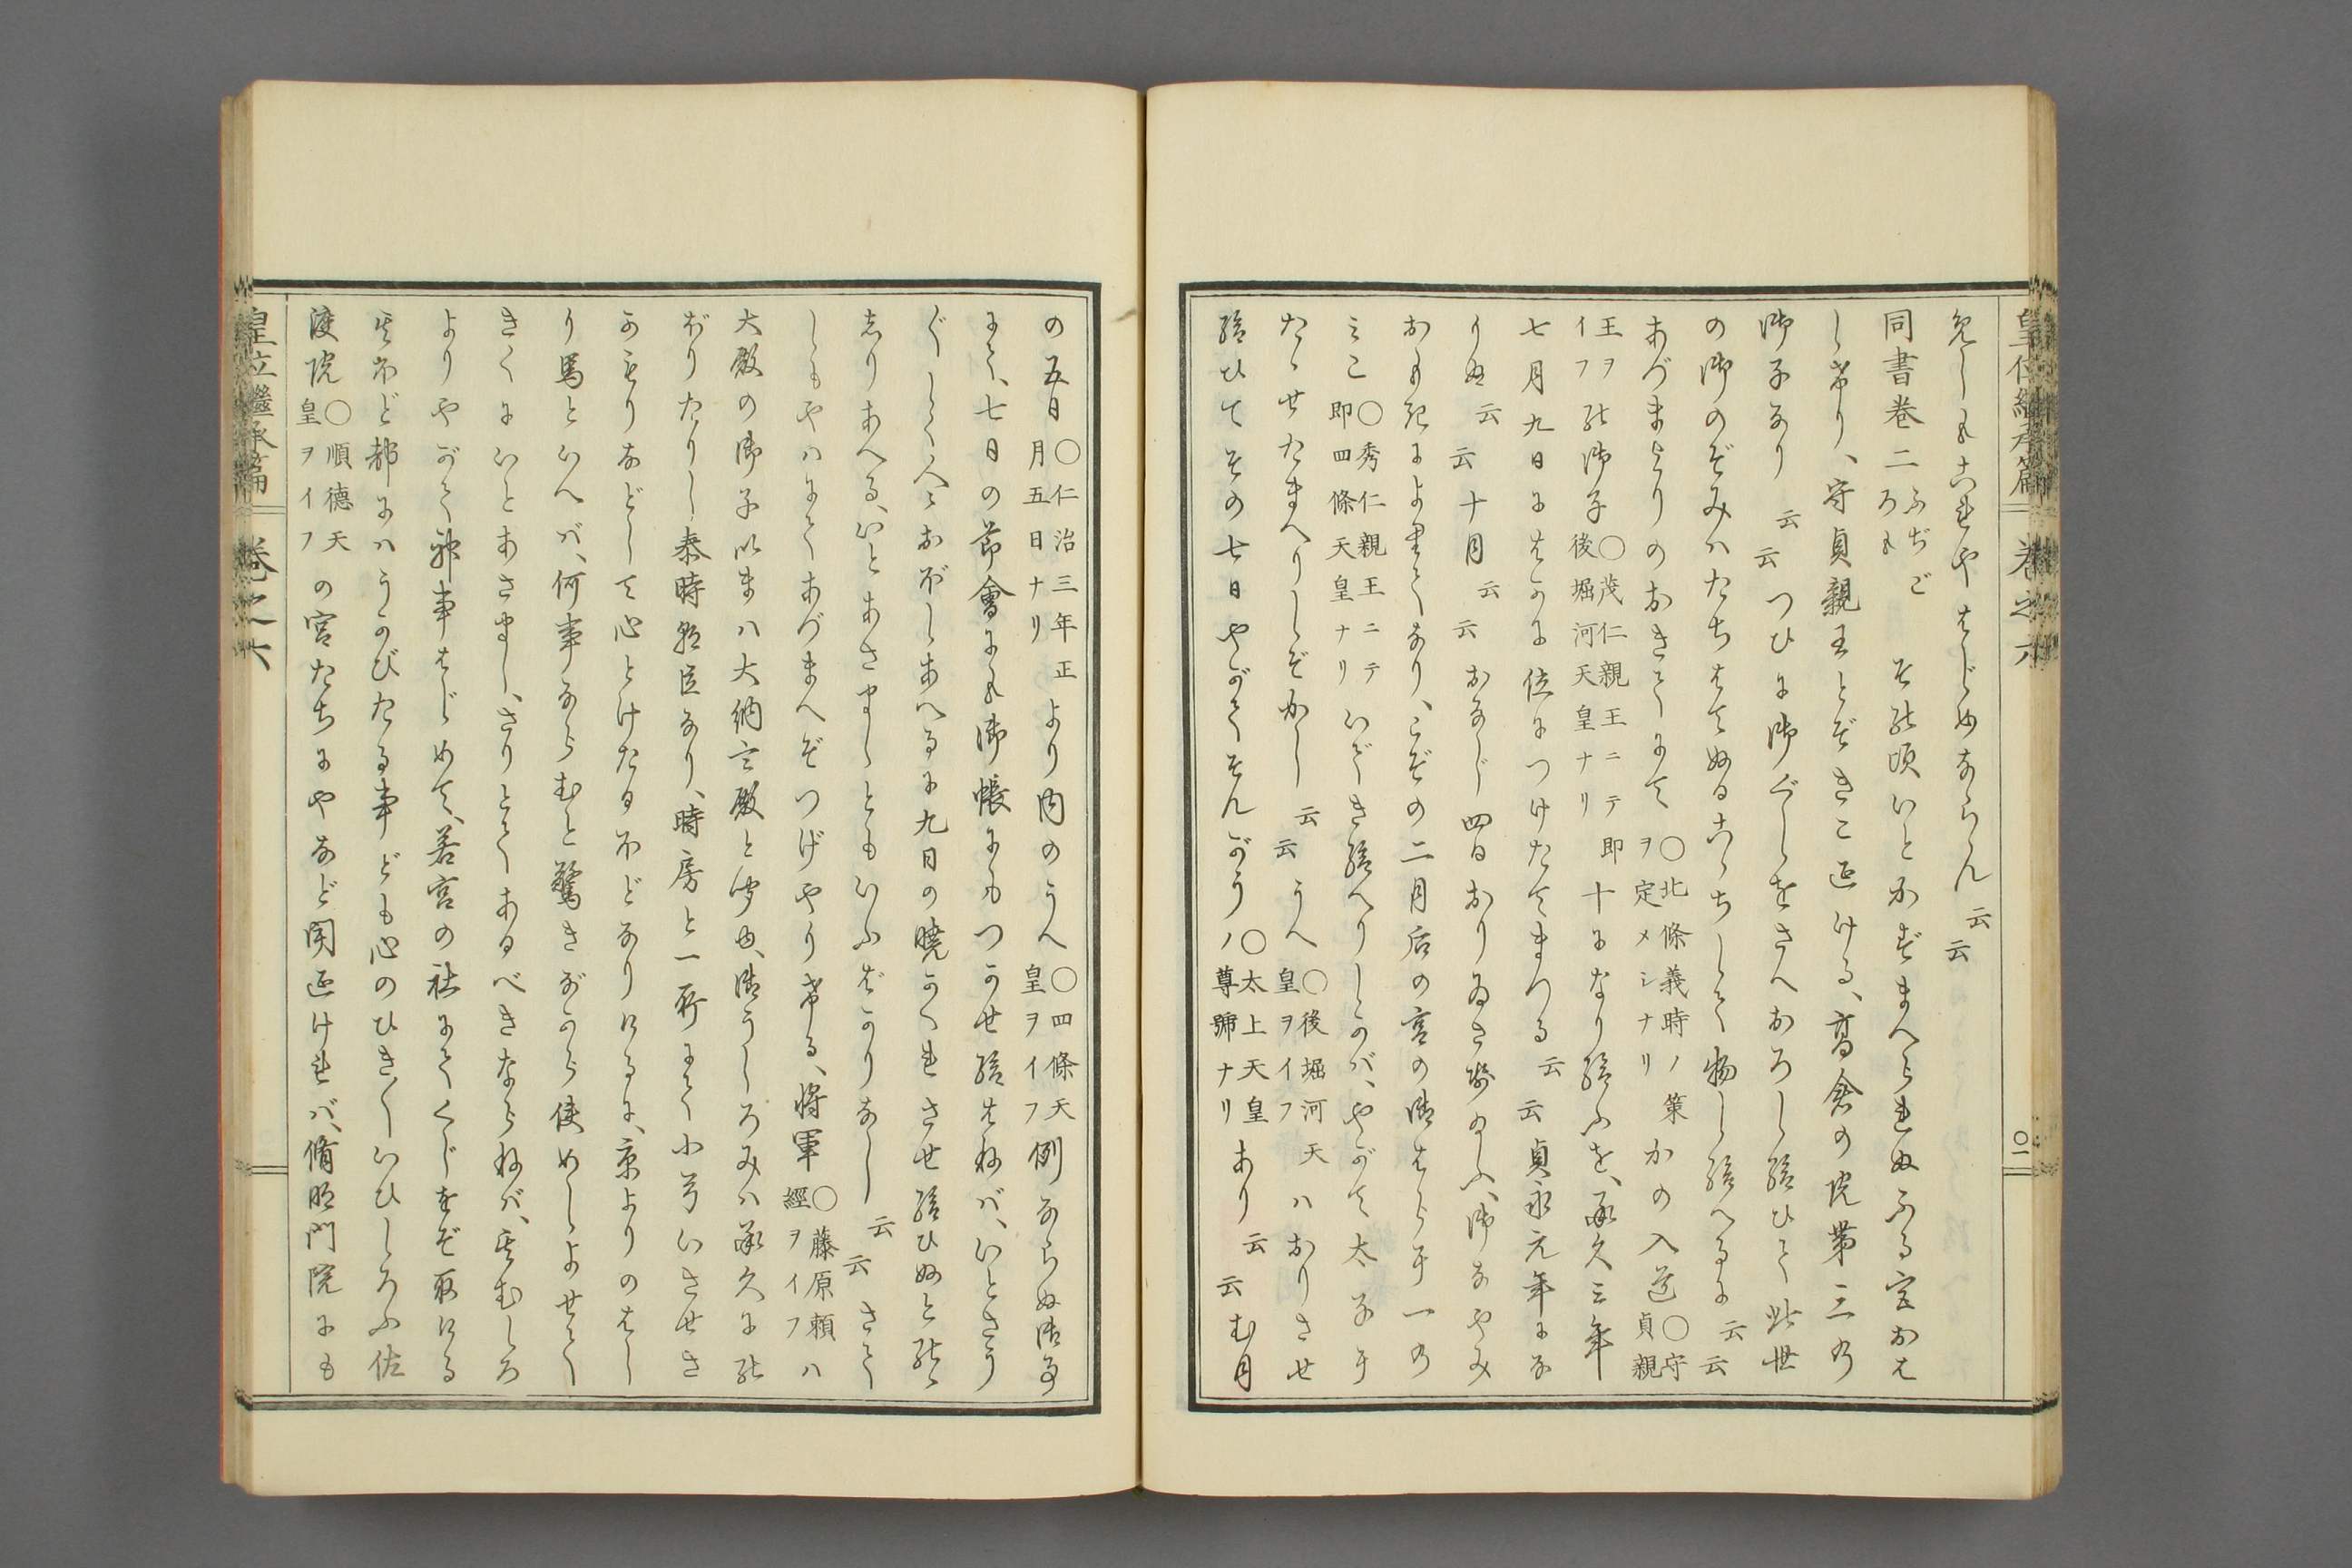 皇位繼承篇　卷之六　〇一
免しもこれやはじめならん云云
同書卷二ふぢごろも　その頃いとかずまへられぬふる宮おは
しけり、守貞親王とぞきこえける、高倉の院第三の
御子なり云云つひに御ぐしをさへおろし給ひて此世
の御のぞみハたちはてぬるこゝちして物し給へるに云云
あづまよりのおきてにて〇北條義時ノ策ヲ定メシナリかの入道〇守貞親
王ヲイフの御子〇茂仁親王ニテ即後堀河天皇ナリ十になり給ふを、承久三年
七月九日にはかに位につけたてまつる云云貞永元年にな
りぬ云云十月云云おなじ四日おりゐさせ給ふ、御なやみ
おもきによりてなり、こぞの二月后の宮の御はらに一の
みこ〇秀仁親王ニテ即四條天皇ナリいでき給へりしかば、やがて太子に
たゝせたまへりしぞかし云云うへ〇後堀河天皇ヲイフハおりさせ
給ひてその七日やがてそんがう〇太上天皇ノ尊號ナリあり云云む月
の五日〇仁治三年正月五日ナリより内のうへ〇四條天皇ヲイフ例ならぬ御事
にて、七日の節會にも御帳にもつかせ給はねば、いとさう
ぐしく人々おぼしあへるに九日の曉かくれさせ給ひぬとのゝ
しりあへる、いとあさましともいふばかりなし云云さて
しもやハにてあづまへぞつげやりける、將軍〇藤原頼經ヲイフハ
大殿の御子いまハ大納言殿と聞ゆ、御うしろみハ承久にの
ぼりたりし泰時朝臣なり、時房と一所にて小弓いさせさ
かもりなどして心とけたるほどなりけるに、京よりのはし
り馬といへば、何事ならむと驚きながら使めしよせて
きくにいとあさまし、さりとてあるべきならねば、其むしろ
よりやがて神事はじめて、若宮の社にてくじをぞ取ける
其ほど都にハうかびたる事ども心のひき〳〵いひしろふ佐
渡院〇順德天皇ヲイフの宮たちにやなど聞えければ、脩明門院にも
皇位繼承篇　卷之六